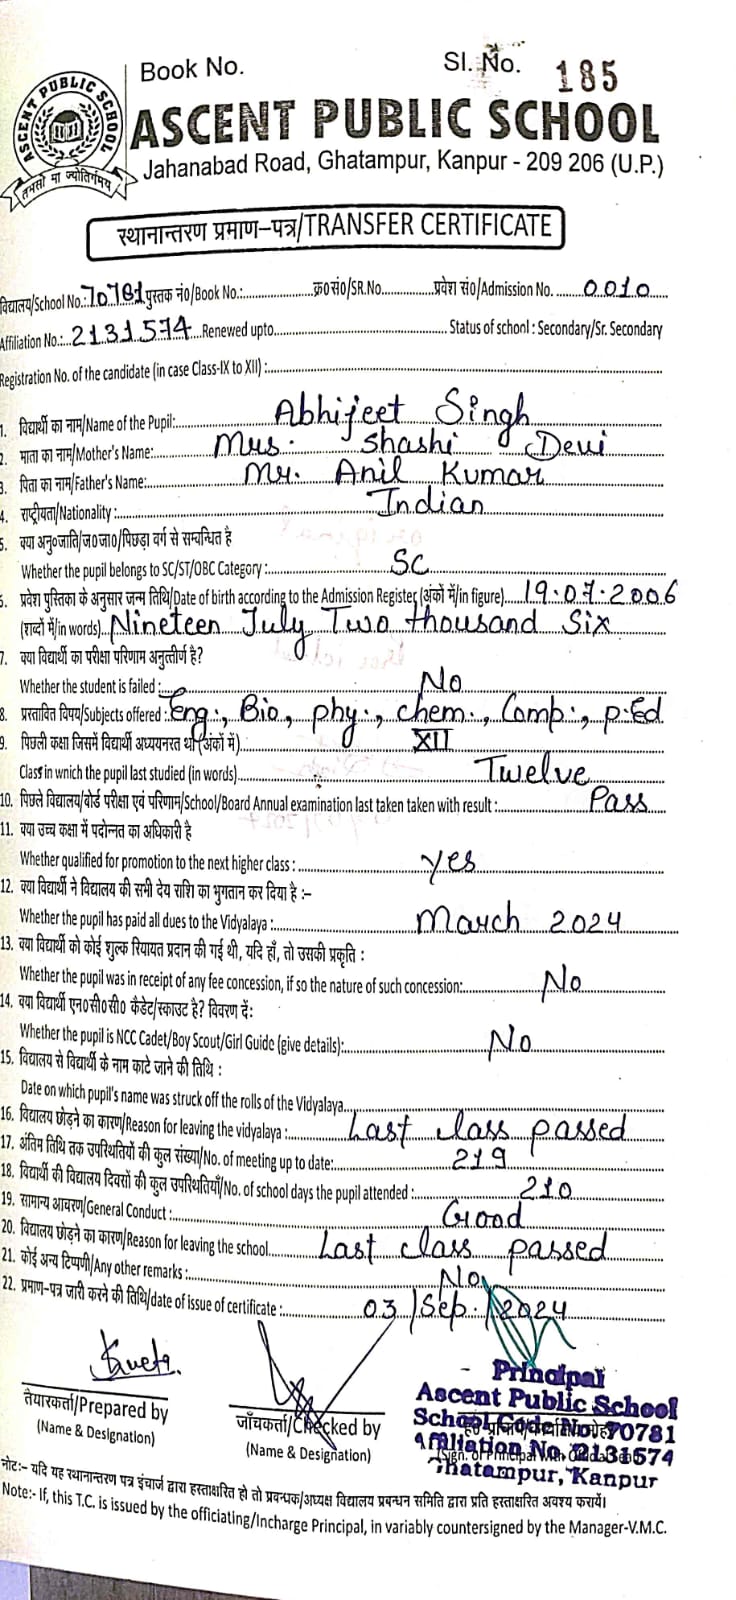 Book No. Sl. No. 185
ASCENT PUBLIC SCHOOL
तमसो मा ज्योतिर्गमय
ASCENT PUBLIC SCHOOL
Jahanabad Road, Ghatampur, Kanpur - 209 206 (U.P.)
स्थानान्तरण प्रमाण-पत्र/TRANSFER CERTIFICATE
विद्यालय/School No.: 70781 पुस्तक नं०/Book No.:............ क्र०सं०/SR.No............ प्रवेश सं०/Admission No. ...... 0010
Affiliation No.: 2131574 Renewed upto............ Status of school : Secondary/Sr. Secondary
Registration No. of the candidate (in case Class-IX to XII) :............
1. विद्यार्थी का नाम/Name of the Pupil:...... Abhijeet Singh
2. माता का नाम/Mother's Name:...... Mrs. Shashi Devi
3. पिता का नाम/Father's Name:...... Mr. Anil Kumar
4. राष्ट्रीयता/Nationality :...... Indian
5. क्या अनु०जाति/ज०जा०/पिछड़ा वर्ग से सम्बन्धित है
Whether the pupil belongs to SC/ST/OBC Category :...... SC
6. प्रवेश पुस्तिका के अनुसार जन्म तिथि/Date of birth according to the Admission Register (अंकों में/in figure)...... 19.07.2006
(शब्दों में/in words) Nineteen July Two thousand Six
7. क्या विद्यार्थी का परीक्षा परिणाम अनुत्तीर्ण है?
Whether the student is failed :...... No
8. प्रस्तावित विषय/Subjects offered : Eng., Bio., phy., chem., Comp., p.Ed
9. पिछली कक्षा जिसमें विद्यार्थी अध्ययनरत था (अंकों में)...... XII
Class in wnich the pupil last studied (in words)...... Twelve
10. पिछले विद्यालय/बोर्ड परीक्षा एवं परिणाम/School/Board Annual examination last taken taken with result :...... Pass
11. क्या उच्च कक्षा में पदोन्नत का अधिकारी है
Whether qualified for promotion to the next higher class :...... yes
12. क्या विद्यार्थी ने विद्यालय की सभी देय राशि का भुगतान कर दिया है :-
Whether the pupil has paid all dues to the Vidyalaya :...... March 2024
13. क्या विद्यार्थी को कोई शुल्क रियायत प्रदान की गई थी, यदि हाँ, तो उसकी प्रकृति :
Whether the pupil was in receipt of any fee concession, if so the nature of such concession:...... No
14. क्या विद्यार्थी एन०सी०सी० कैडेट/स्काउट है? विवरण दें:
Whether the pupil is NCC Cadet/Boy Scout/Girl Guide (give details):...... No
15. विद्यालय से विद्यार्थी के नाम काटे जाने की तिथि :
Date on which pupil's name was struck off the rolls of the Vidyalaya............
16. विद्यालय छोड़ने का कारण/Reason for leaving the vidyalaya :...... Last class passed
17. अंतिम तिथि तक उपस्थितियों की कुल संख्या/No. of meeting up to date:...... 219
18. विद्यार्थी की विद्यालय दिवसों की कुल उपस्थितियाँ/No. of school days the pupil attended :...... 210
19. सामान्य आचरण/General Conduct :...... Good
20. विद्यालय छोड़ने का कारण/Reason for leaving the school...... Last class passed
21. कोई अन्य टिप्पणी/Any other remarks :...... No
22. प्रमाण-पत्र जारी करने की तिथि/date of issue of certificate :...... 03/Sep./2024
तैयारकर्ता/Prepared by
(Name & Designation)
जाँचकर्ता/Checked by
(Name & Designation)
Principal
Ascent Public School
School Code No. 70781
Affiliation No. 2131574
Ghatampur, Kanpur
नोट:- यदि यह स्थानान्तरण पत्र इंचार्ज द्वारा हस्ताक्षरित हो तो प्रबन्धक/अध्यक्ष विद्यालय प्रबन्धन समिति द्वारा प्रति हस्ताक्षरित अवश्य करायें।
Note:- If, this T.C. is issued by the officiating/Incharge Principal, in variably countersigned by the Manager-V.M.C.